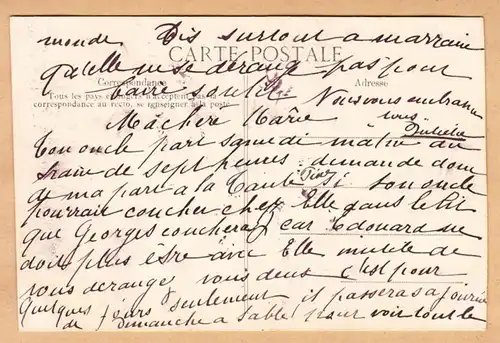 monde Dis surtout a marraine
CARTE POSTALE
qu'elle ne se dérange pas pour
Correspondance
Adresse
Tous les pays étrangers n'acceptent pas la
correspondance au recto, se renseigner à la poste
faire
Nous vous embrasse
tous
Juliette
Ma chere Marie
Ton oncle part samedi matin au
train de sept heures. demande donc
de ma par a la Tante si ton oncle
pourrait coucher chez Elle dans le lit
que Georges couchera car Edouard ne
doit plus être avec Elle inutile de
vous deranger vous deux c'est pour
quelques jours seulement il passeras a journée
de dimanche a Sable pour voir tout le